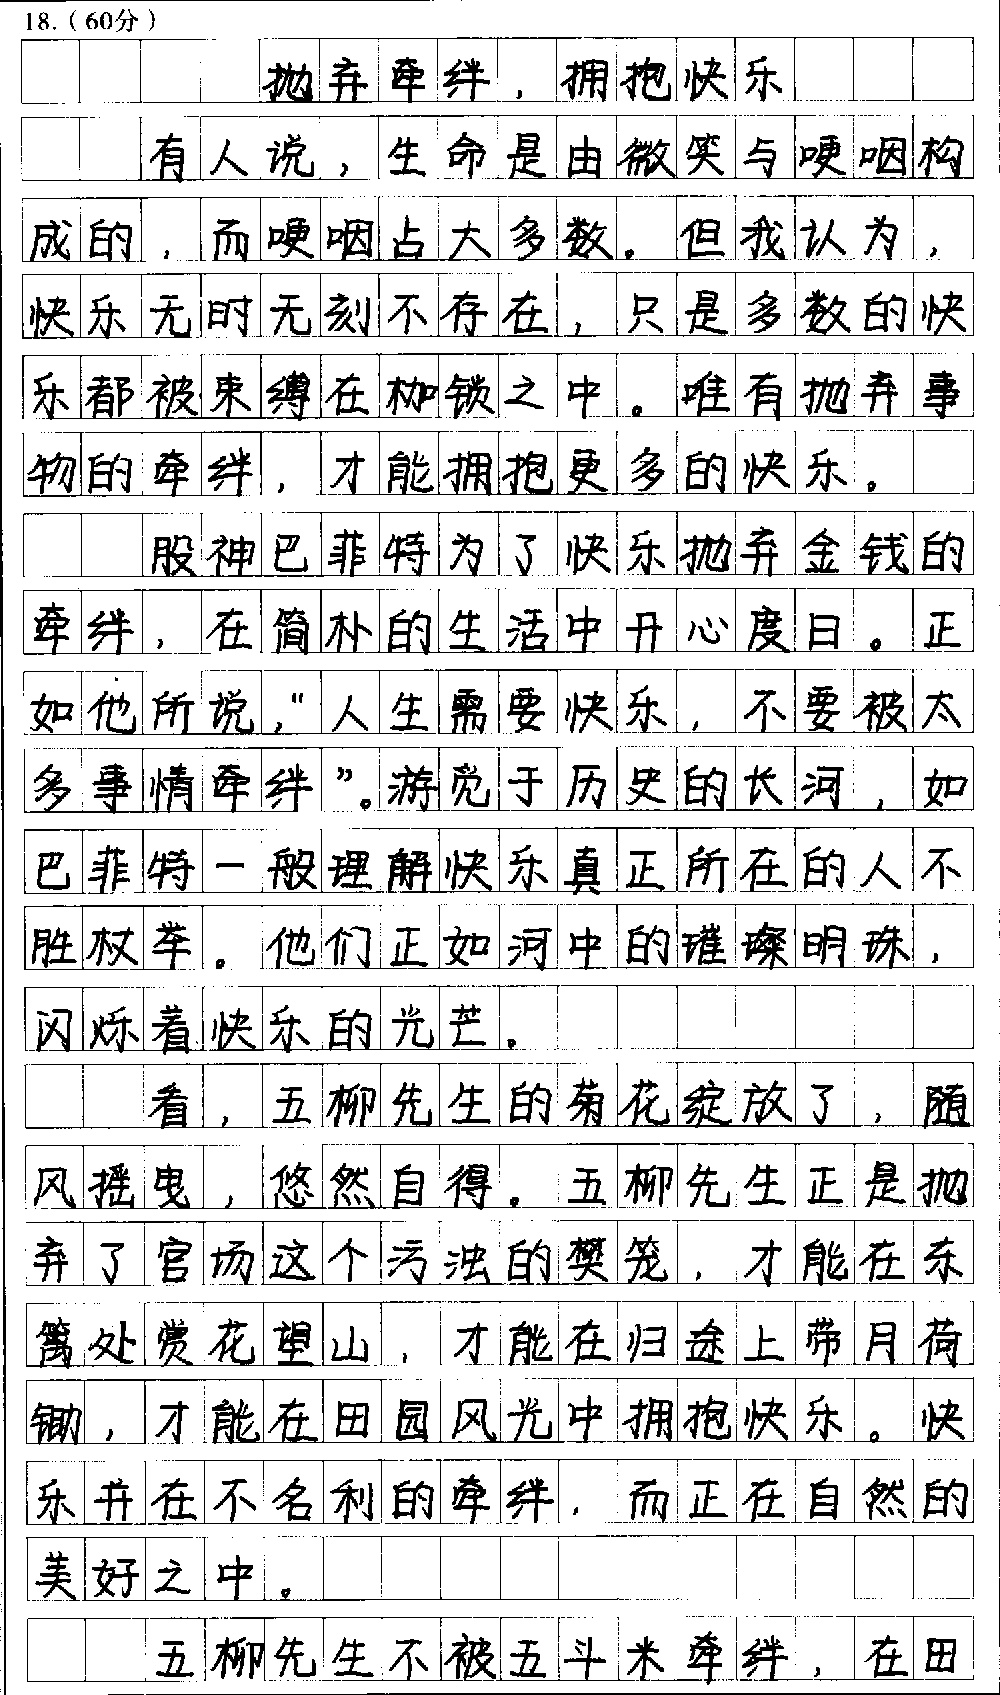 18.(60分)
抛弃牵绊，拥抱快乐
有人说，生命是由微笑与哽咽构
成的，而哽咽占大多数。但我认为，
快乐无时无刻不存在，只是多数的快
乐都被束缚在枷锁之中。唯有抛弃事
物的牵绊，才能拥抱更多的快乐。
股神巴菲特为了快乐抛弃金钱的
牵绊，在简朴的生活中开心度日。正
如他所说，“人生需要快乐，不要被太
多事情牵绊”。游览于历史的长河，如
巴菲特一般理解快乐真正所在的人不
胜枚举。他们正如河中的璀璨明珠，
闪烁着快乐的光芒。
看，五柳先生的菊花绽放了，随
风摇曳，悠然自得。五柳先生正是抛
弃了官场这个污浊的樊笼，才能在东
篱处赏花望山，才能在归途上带月荷
锄，才能在田园风光中拥抱快乐。快
乐并在不名利的牵绊，而正在自然的
美好之中。
五柳先生不被五斗米牵绊，在田